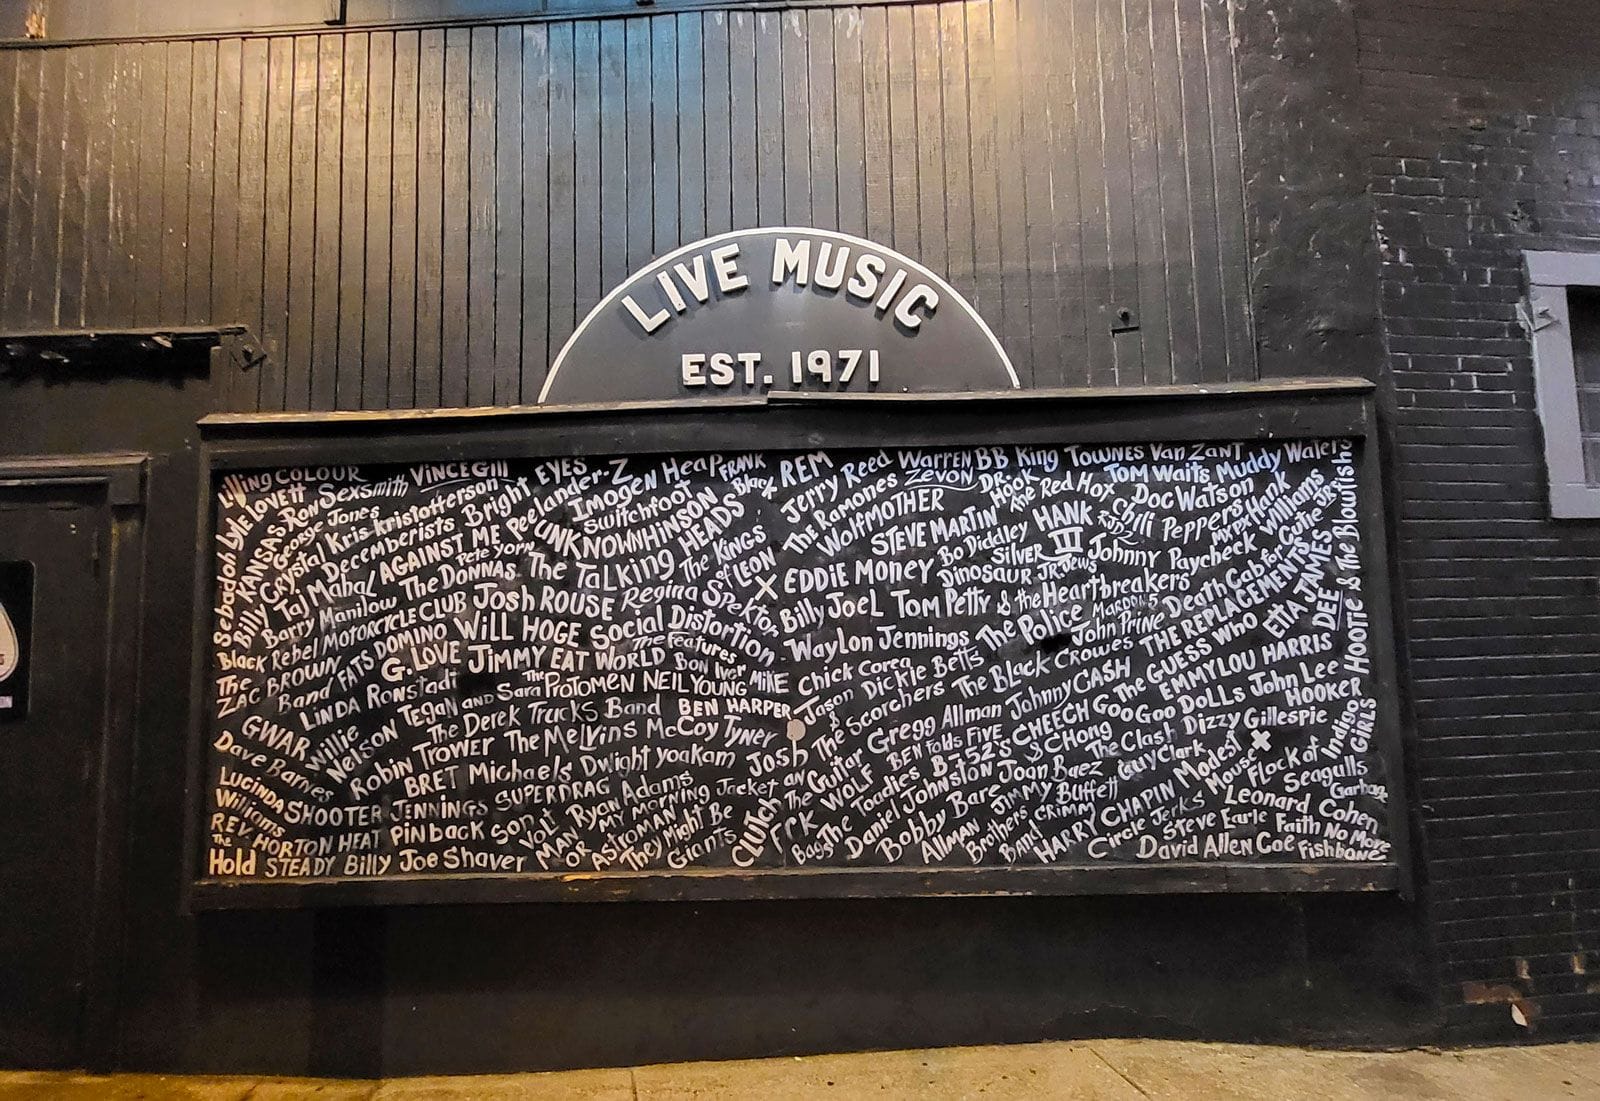 LIVE MUSIC
EST. 1971
Living COLOUR
Lyle LOVETT
Ron Sexsmith
VINCE Gill
Bright EYES
Peelander-Z
Imogen Heap
FRANK Black
REM
Jerry Reed
WARREN ZEVON
BB King
TOWNES Van ZANT
Muddy Waters
Sebadoh
KANSAS
George Jones
Kris Kristofferson
Switchfoot
The Ramones
DR. Hook
The Red Hot Chili Peppers
TOM WaiTs
Doc Watson
Billy Crystal
Decemberists
UNKNOWNHINSON
WolfMOTHER
STEVE MARTIN
HANK III
RJD2
MXPX
Hank Williams JR
Taj Mahal
AGAINST ME
Pete Yorn
The TaLking HEADS
The KINGS of LEON
X
EDDIE MONEY
Bo Diddley
SILVER Jews
Johnny Paycheck
Death Cab for Cutie
Barry Manilow
The DONNAS
Dinosaur JR.
ETTA JAMES
DEE
HOOTIE & The Blowfish
Black Rebel MOTORCYCLE CLUB
Josh ROUSE
Regina Spektor
Billy JoeL
Tom Petty & the Heartbreakers
The ZAC BROWN Band
FATS DOMINO
WiLL HOGE
Social Distortion
Waylon Jennings
The Police
MAROON 5
John PRiNE
THE REPLACEMENTS
G. LOVE
JiMMY EAT WORLD
The Features
BON Iver
MIKE
Chick Corea
Dickie Betts
The Black Crowes
The GUESS Who
EMMYLOU HARRIS
LINDA Ronstadt
Tegan AND Sara
The PROTOMEN
NEIL YOUNG
Jason & The Scorchers
Johnny CASH
John Lee HOOKER
GWAR
Willie Nelson
The Derek Trucks Band
BEN HARPER
Gregg Allman
CHEECH & Chong
Goo Goo DOLLS
Indigo GiRLS
Dave Barnes
Robin Trower
The Melvins
McCoy Tyner
BEN Folds FIVE
Dizzy Gillespie
BRET Michaels
Dwight yoakam
Guitar WOLF
B-52's
The Clash
Modest Mouse
X
Flock of Seagulls
LUCINDA Williams
SHOOTER JENNINGS
SUPERDRAG
Ryan Adams
The Toadies
Joan Baez
Guy Clark
Garbage
REV. HORTON HEAT
PiNback
Son Volt
MY MORNING Jacket
Daniel Johnston
JiMMY Buffett
HARRY CHAPIN
Leonard Cohen
MAN OR ASTROMAN
CLUTCH
Bobby Bare
Circle Jerks
Steve Earle
Faith No More
The Hold STEADY
Billy Joe Shaver
They Might Be Giants
Allman Brothers Band
David Allen Coe
Fishbone